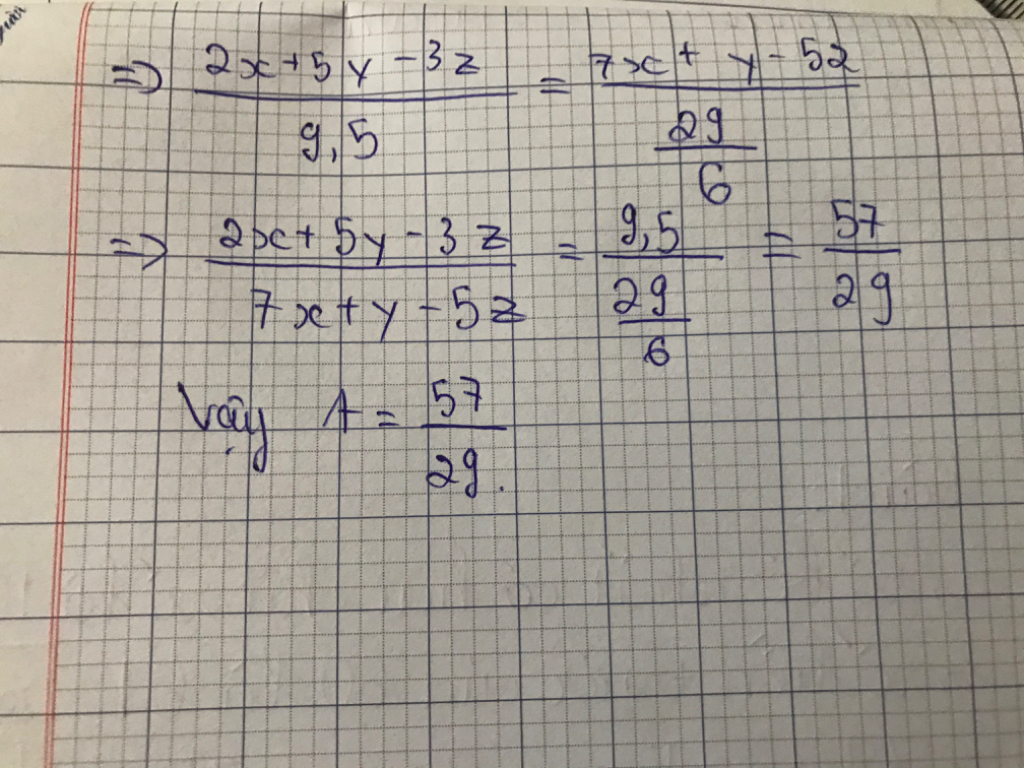 => (2x + 5y - 3z)/(9,5) = (7x + y - 5z)/(29/6)
=> (2x + 5y - 3z)/(7x + y - 5z) = (9,5)/(29/6) = 57/29
Vậy A = 57/29.